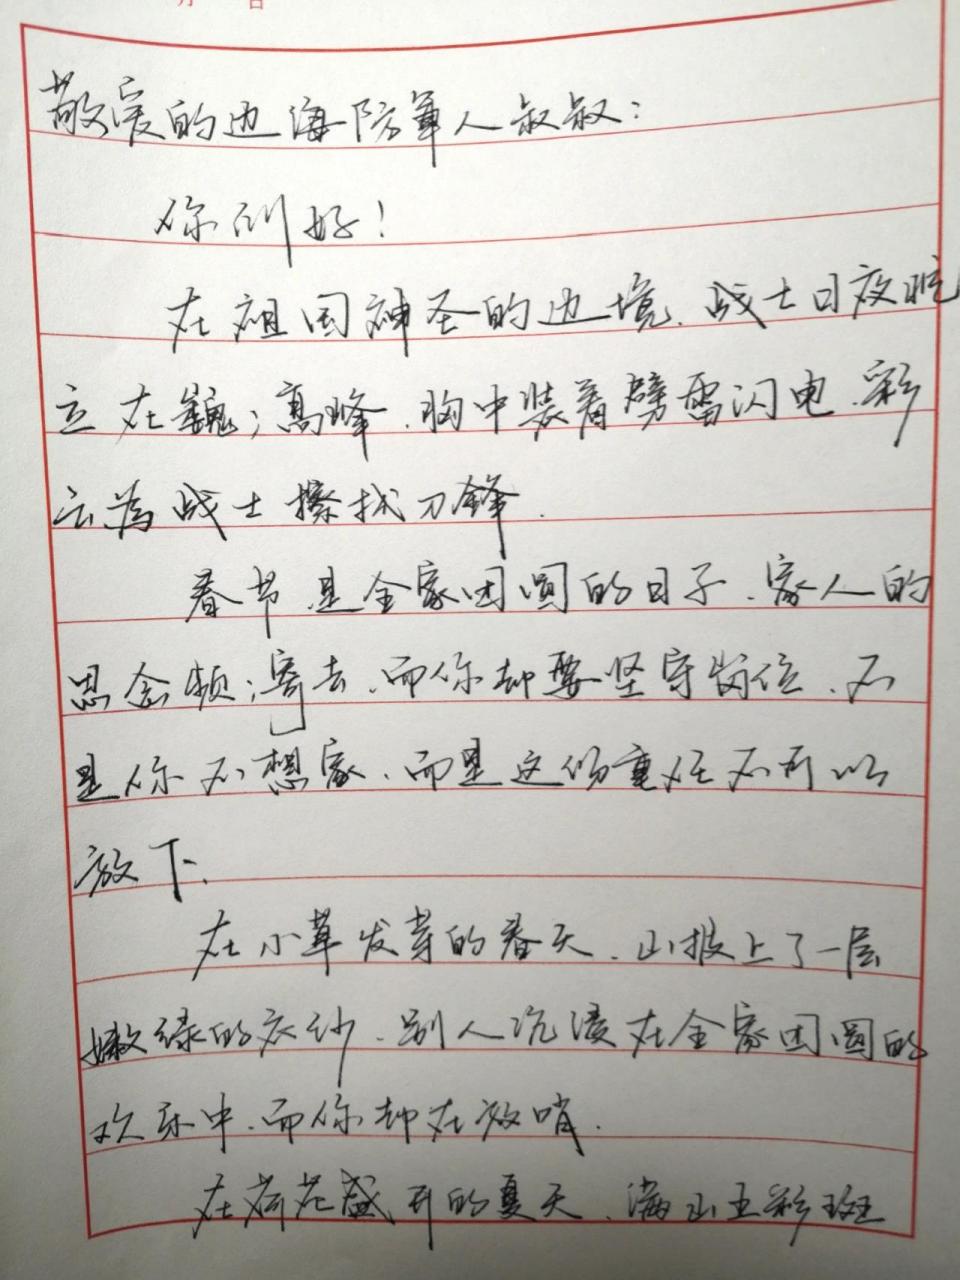 月 日
敬爱的边海防军人叔叔：
你们好！
在祖国神圣的边境、战士日夜屹
立在巍巍高峰、胸中装着劈雷闪电、彩
云为战士擦拭刀锋.
春节是全家团圆的日子、家人的
思念频频寄去、而你却要坚守岗位、不
是你不想家、而是这份重任不可以
放下.
在小草发芽的春天、山披上了一层
嫩绿的衣纱、别人沉浸在全家团圆的
欢乐中、而你却在放哨.
在荷花盛开的夏天、满山五彩斑